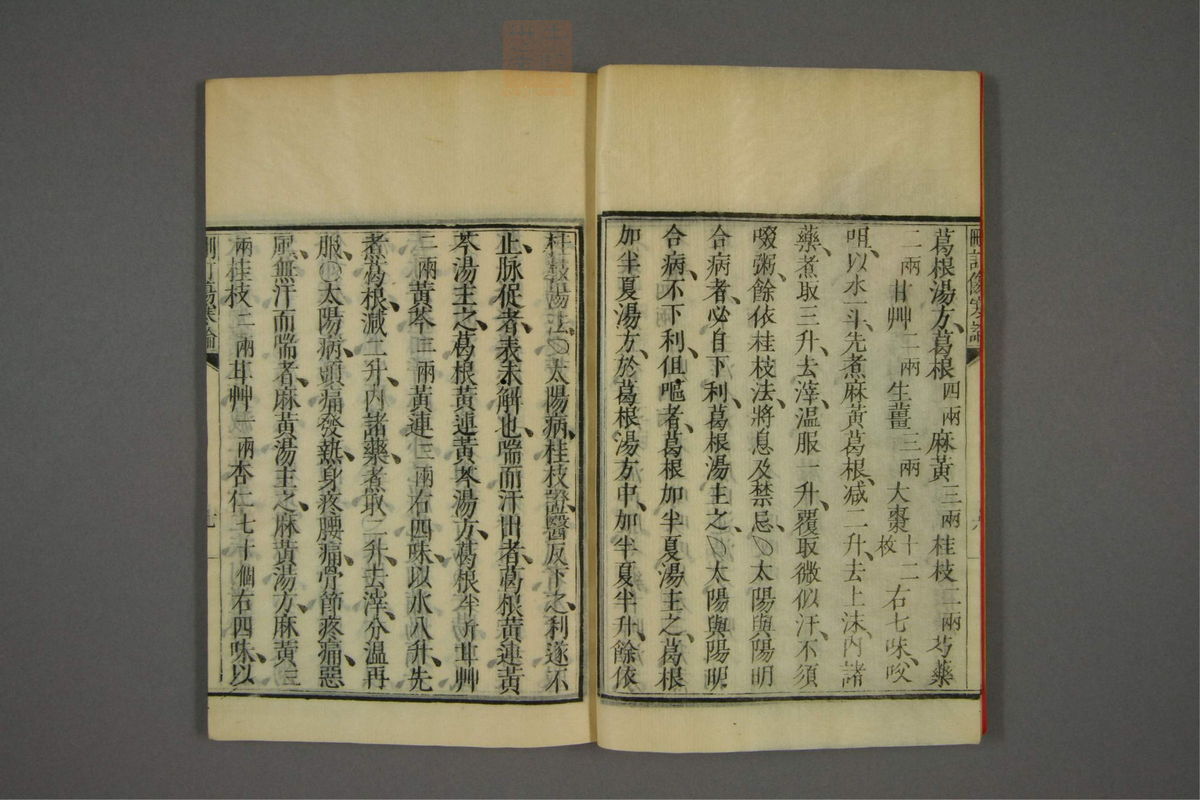 刪訂傷寒論
葛根湯方、葛根四兩麻黃三兩桂枝二兩芍藥
二兩甘艸二兩生薑三兩大棗十二枚右七味、㕮
咀、以水一斗、先煮麻黃葛根、減二升、去上沫、內諸
藥、煮取三升、去滓、溫服一升、覆取微似汗、不須
啜粥、餘依桂枝法將息及禁忌、○太陽與陽明
合病者、必自下利、葛根湯主之、○太陽與陽明
合病、不下利、但嘔者、葛根加半夏湯主之、葛根
加半夏湯方、於葛根湯方中、加半夏半升、餘依
桂枝湯法、○太陽病、桂枝證、醫反下之、利遂不
止、脉促者、表未解也、喘而汗出者、葛根黃連黃
芩湯主之、葛根黃連黃芩湯方、葛根半斤甘艸
二兩黃芩三兩黃連三兩右四味、以水八升、先
煮葛根、減二升、內諸藥、煮取二升、去滓、分溫再
服、○太陽病、頭痛發熱、身疼腰痛、骨節疼痛、惡
風、無汗而喘者、麻黃湯主之、麻黃湯方、麻黃三
兩桂枝二兩甘艸一兩杏仁七十個右四味、以
刪訂傷寒論